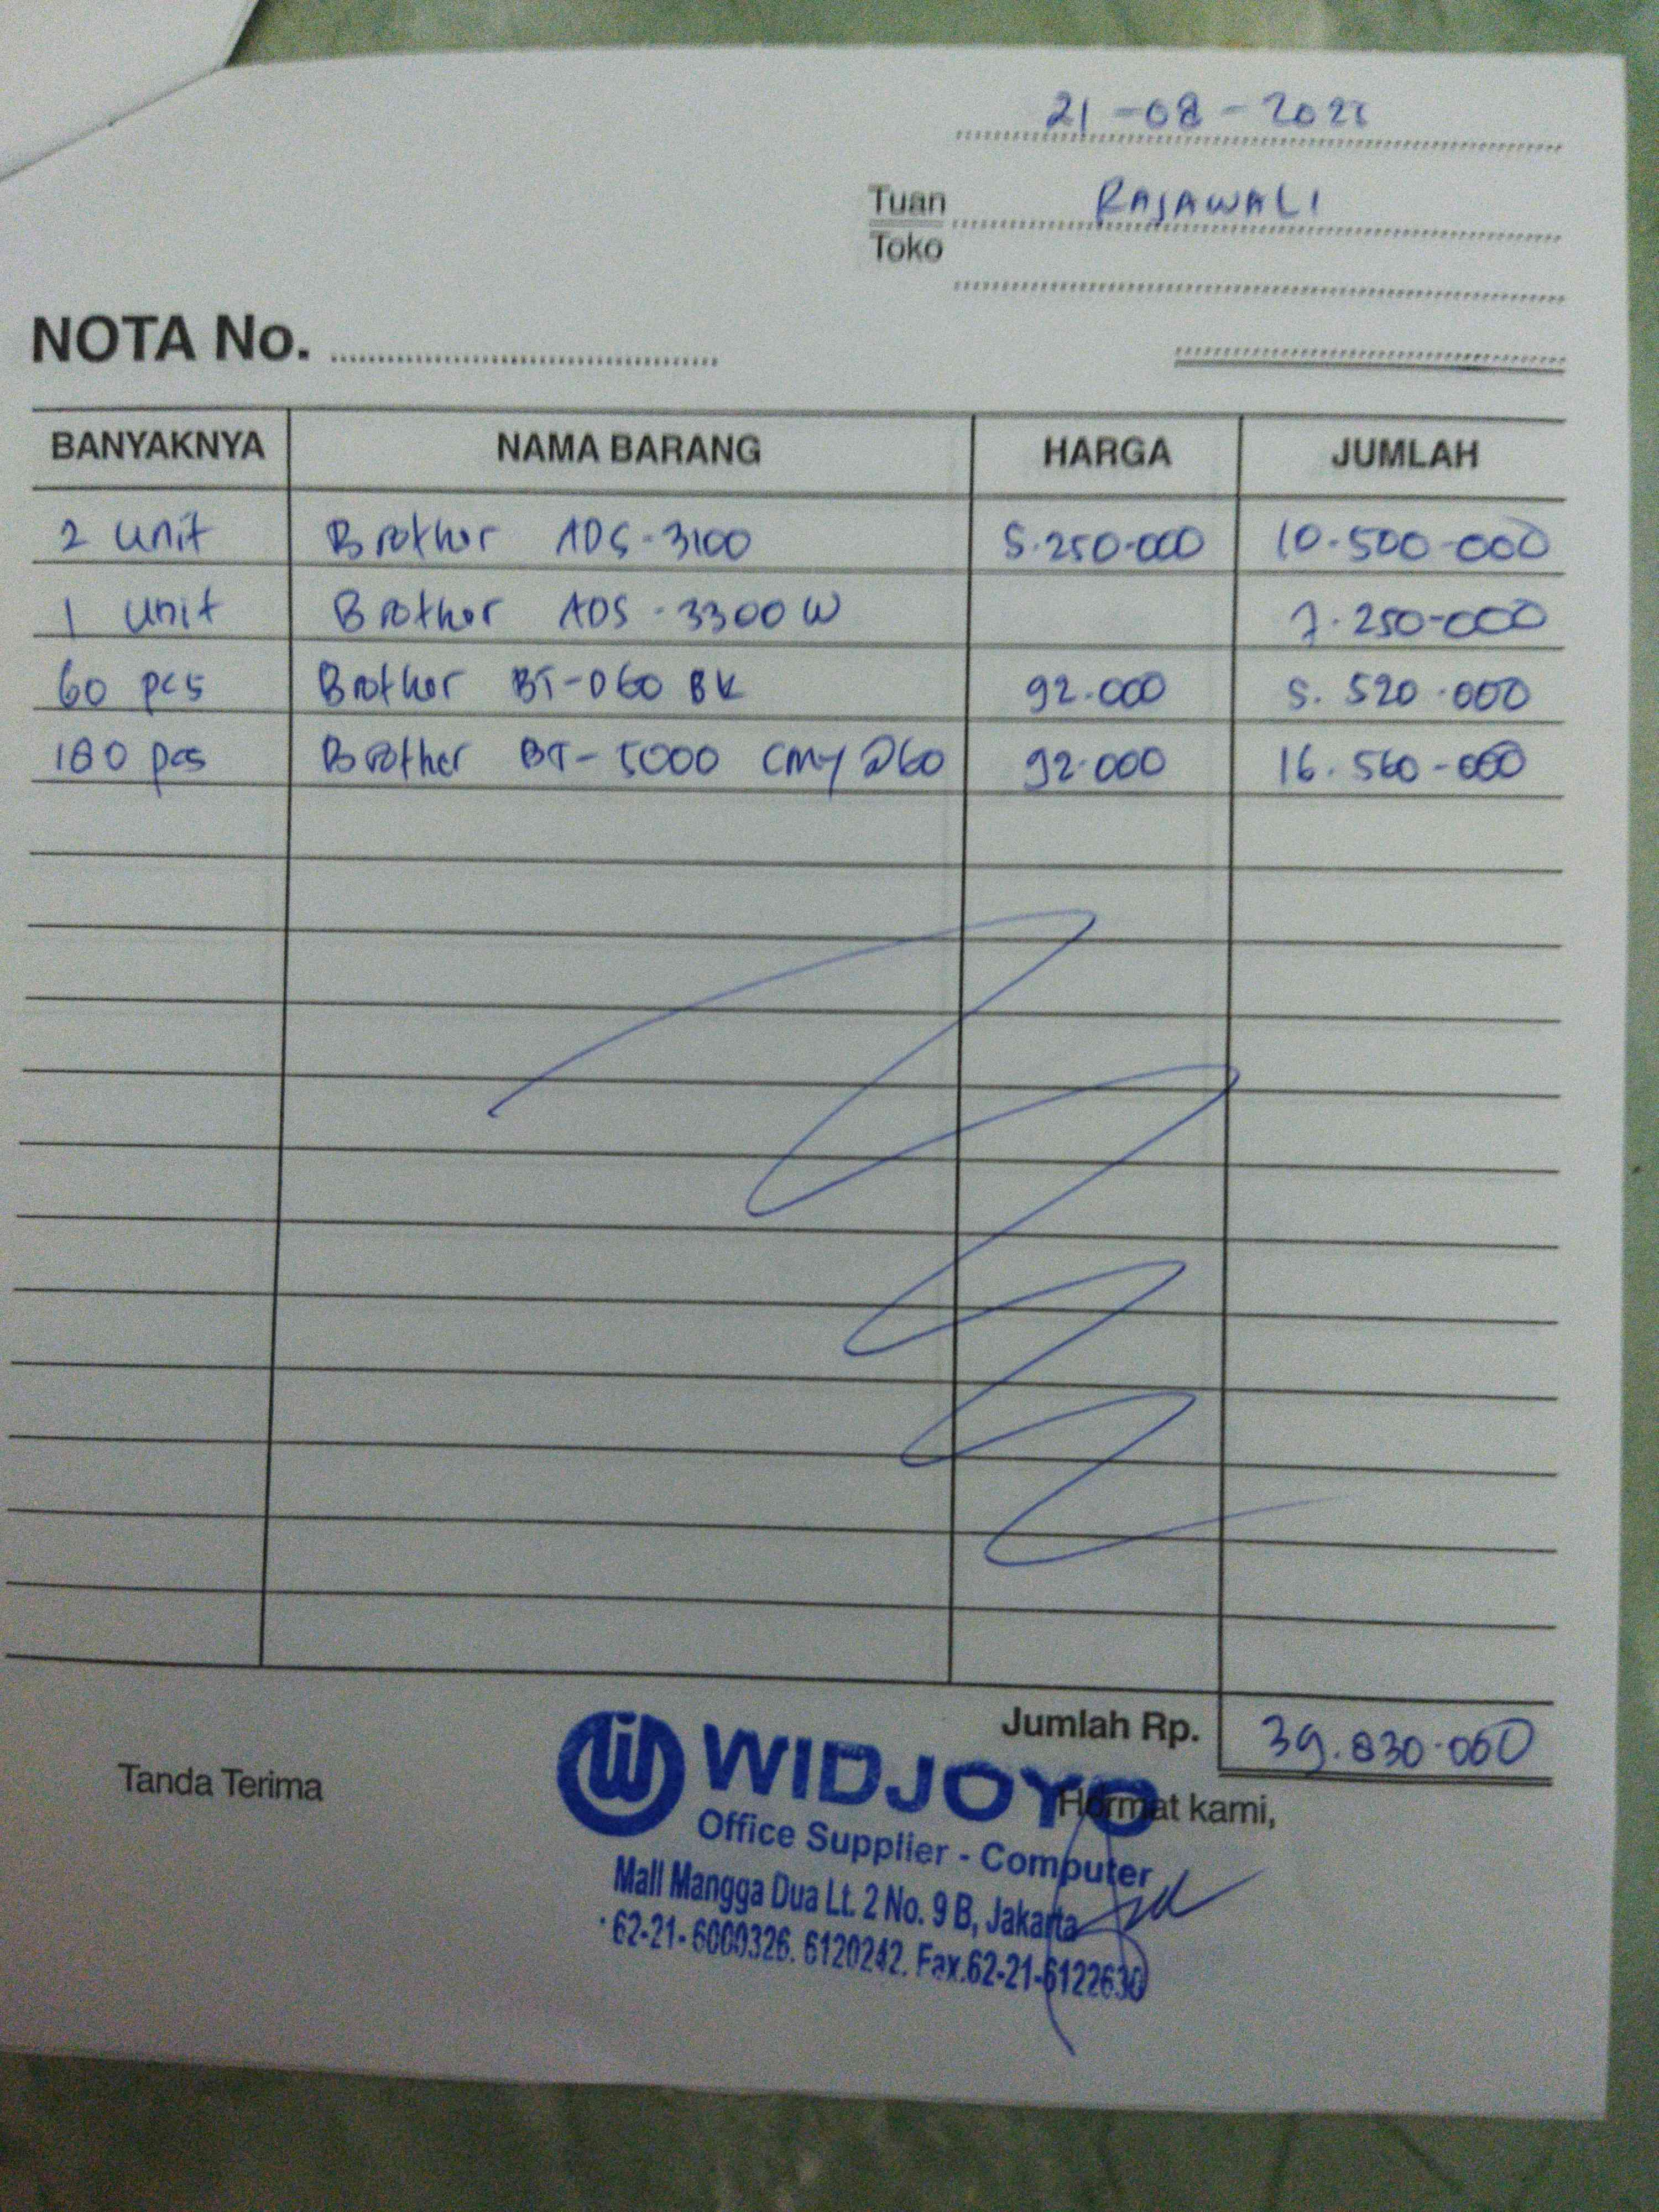 21-08-2025
Tuan RAJAWALI
Toko
NOTA No.
BANYAKNYA NAMA BARANG HARGA JUMLAH
2 unit Brother ADS-3100 5.250.000 10.500.000
1 unit Brother ADS-3300W 7.250.000
60 pcs Brother BT-D60 BK 92.000 5.520.000
180 pcs Brother BT-5000 CMY @60 92.000 16.560.000
Jumlah Rp. 39.830.000
Tanda Terima
Hormat kami,
WIDJOYO
Office Supplier - Computer
Mall Mangga Dua Lt. 2 No. 9 B, Jakarta
62-21-6009326. 6120242. Fax.62-21-6122630